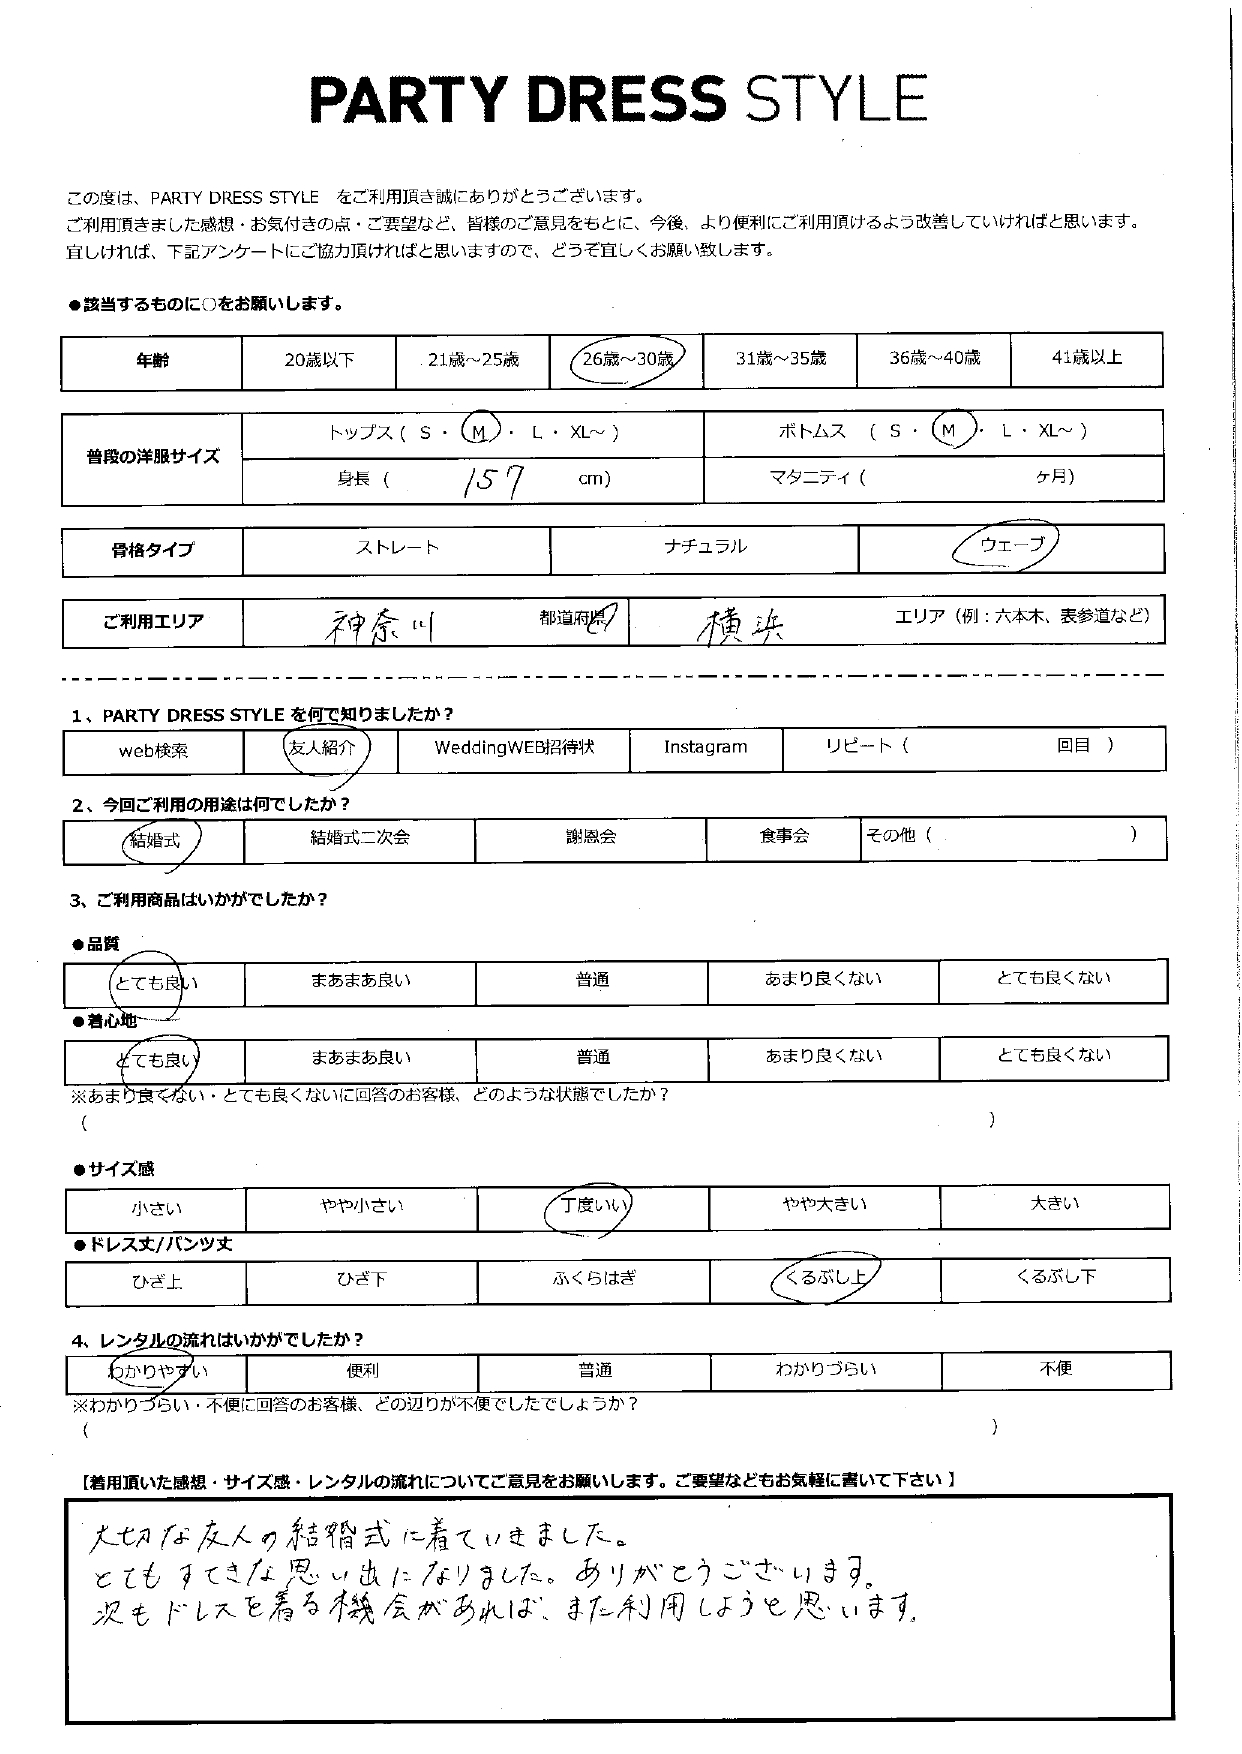 PARTY DRESS STYLE
この度は、PARTY DRESS STYLE をご利用頂き誠にありがとうございます。
ご利用頂きました感想・お気付きの点・ご要望など、皆様のご意見をもとに、今後、より便利にご利用頂けるよう改善していければと思います。
宜しければ、下記アンケートにご協力頂ければと思いますので、どうぞ宜しくお願い致します。
●該当するものに○をお願いします。
年齢 20歳以下 21歳～25歳 26歳～30歳 31歳～35歳 36歳～40歳 41歳以上
普段の洋服サイズ
トップス ( S ・ M ・ L ・ XL～ ) ボトムス ( S ・ M ・ L ・ XL～ )
身長 ( 157 cm) マタニティ ( ヶ月)
骨格タイプ ストレート ナチュラル ウェーブ
ご利用エリア 神奈川 都道府県 横浜 エリア（例：六本木、表参道など）
1、PARTY DRESS STYLE を何で知りましたか？
web検索 友人紹介 WeddingWEB招待状 Instagram リピート ( 回目 )
2、今回ご利用の用途は何でしたか？
結婚式 結婚式二次会 謝恩会 食事会 その他 ( )
3、ご利用商品はいかがでしたか？
●品質
とても良い まあまあ良い 普通 あまり良くない とても良くない
●着心地
とても良い まあまあ良い 普通 あまり良くない とても良くない
※あまり良くない・とても良くないに回答のお客様、どのような状態でしたか？
( )
●サイズ感
小さい やや小さい 丁度いい やや大きい 大きい
●ドレス丈/パンツ丈
ひざ上 ひざ下 ふくらはぎ くるぶし上 くるぶし下
4、レンタルの流れはいかがでしたか？
わかりやすい 便利 普通 わかりづらい 不便
※わかりづらい・不便に回答のお客様、どの辺りが不便でしたでしょうか？
( )
【着用頂いた感想・サイズ感・レンタルの流れについてご意見をお願いします。ご要望などもお気軽に書いて下さい 】
大切な友人の結婚式に着ていきました。
とてもすてきな思い出になりました。ありがとうございます。
次もドレスを着る機会があれば、また利用しようと思います。